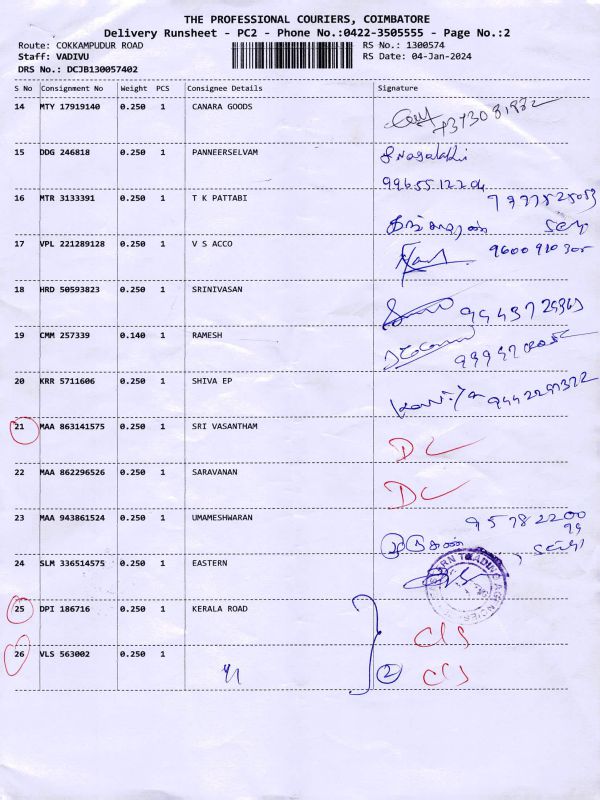 THE PROFESSIONAL COURIERS, COIMBATORE
Delivery Runsheet - PC2 - Phone No.:0422-3505555 - Page No.:2
Route: COKKAMPUDUR ROAD RS No.: 1300574
Staff: VADIVU RS Date: 04-Jan-2024
DRS No.: DCJB130057402
S No Consignment No Weight PCS Consignee Details Signature
14 MTY 17919140 0.250 1 CANARA GOODS
15 DDG 246818 0.250 1 PANNEERSELVAM
16 MTR 3133391 0.250 1 T K PATTABI
17 VPL 221289128 0.250 1 V S ACCO
18 HRD 50593823 0.250 1 SRINIVASAN
19 CMM 257339 0.140 1 RAMESH
20 KRR 5711606 0.250 1 SHIVA EP
21 MAA 863141575 0.250 1 SRI VASANTHAM DC
22 MAA 862296526 0.250 1 SARAVANAN DC
23 MAA 943861524 0.250 1 UMAMESHWARAN
24 SLM 336514575 0.250 1 EASTERN
25 DPI 186716 0.250 1 KERALA ROAD CLS
26 VLS 563002 0.250 1 2 CLS